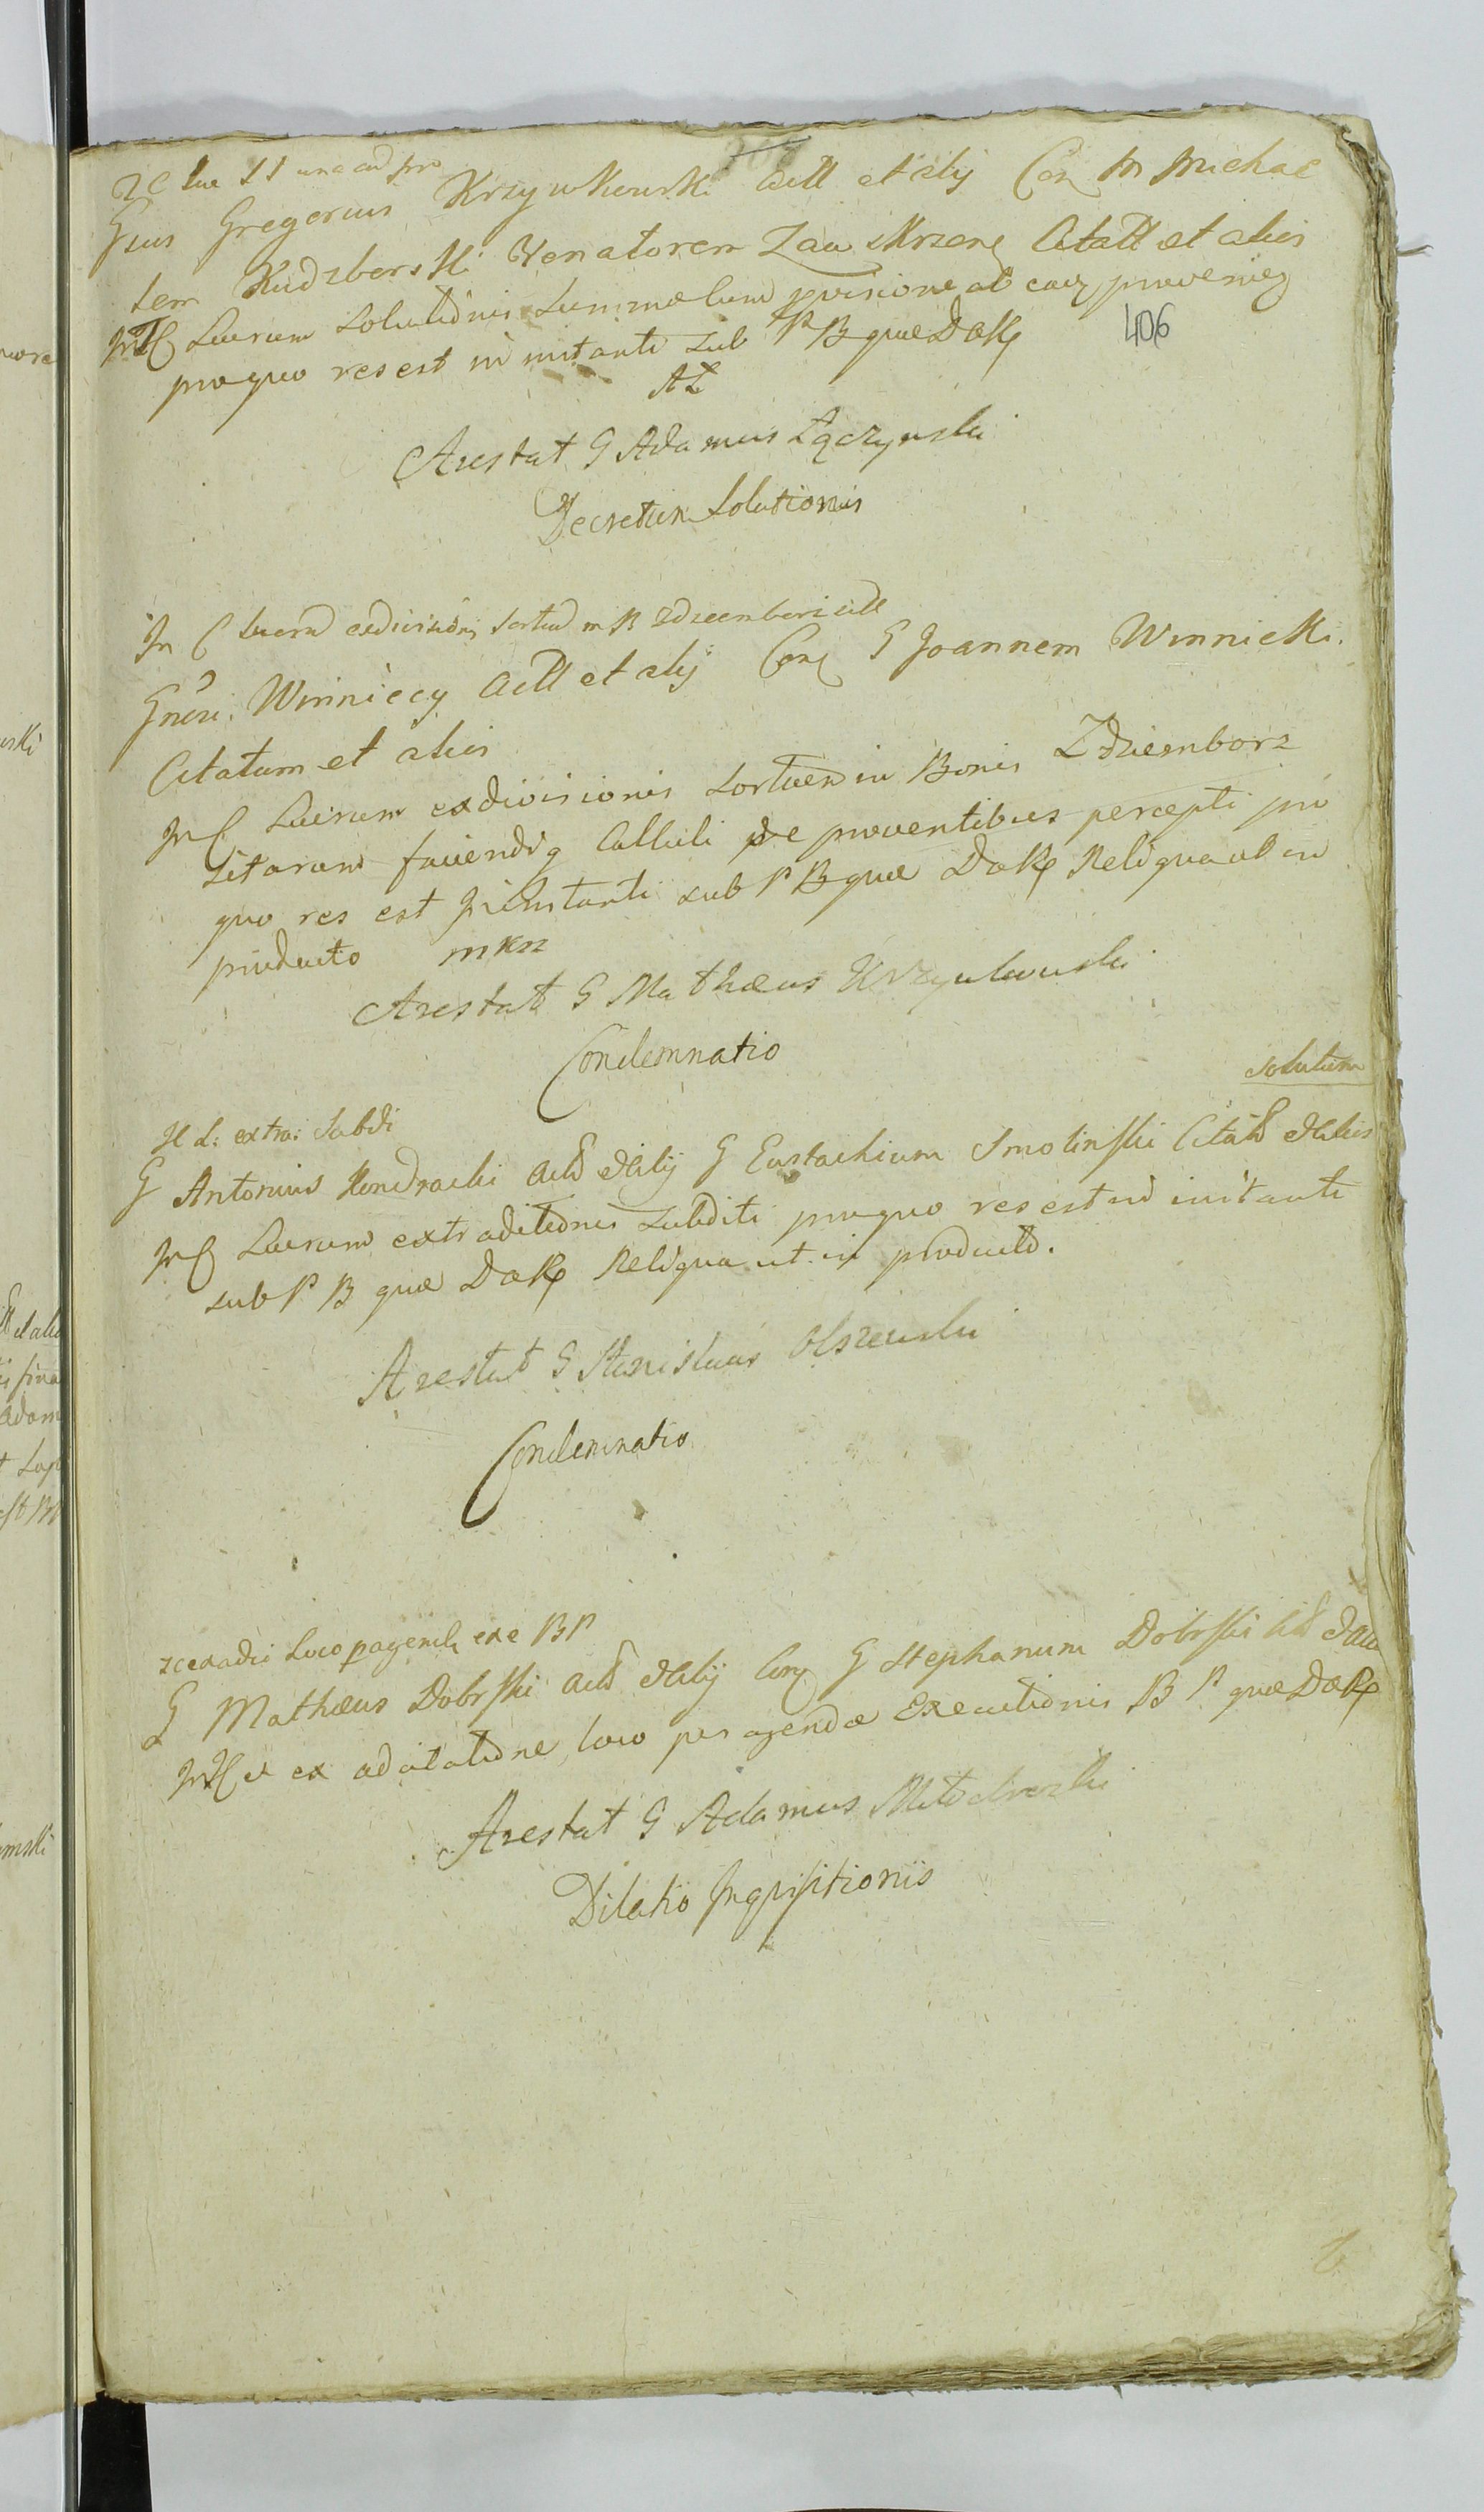 406
Gsus Gregorius Krzywkowski Actt et alij Con M Michae
lem Kudzborski Venatorem Zawskrzen Citatt et alios
Lucrum Solutionis Summalum provisione ab eaq provenieg
pro quo res est in instanti sub P B quae DaRp
AZ
Arestat G Adamus Łączynski
Decretum Solutionis
In C lucrum exdivisionis Sortium in B Zdziemborz
Gnosi Winniccy Actt et alij Con G Joannem Winnicki
Citatum et alios
In C Lucrum exdivisionis Sortium in Bonis Zdziemborz
Sitarum faciendiq Calculi de proventibus percepti pro
quo res est in instanti sub P B quae DaRp Reliqua ut in
producto mkn
Arestat G Mathaeus Krzywkowski
Condemnatio
solutum
H L: extra: Subdi
G Antonius Kondracki Actt et alij G Eustachium Smolinski Citatt et alios
In C Lucrum extraditionis Subditi pro quo res est in instanti
sub P B quae DaRp Reliqua ut in producto.
Arestat G Stanislaus Olszewski
Condemnatio
loco exe BP
G Mathaeus Dobrski Actt et alij Con G Stephanum Dobrski
ex adcitatione loco peragendae Executionis B P quae DaRp
Arestat G Adamus
Dilatio Inquisitionis